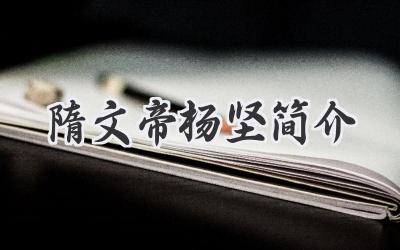 隋文帝杨坚简介